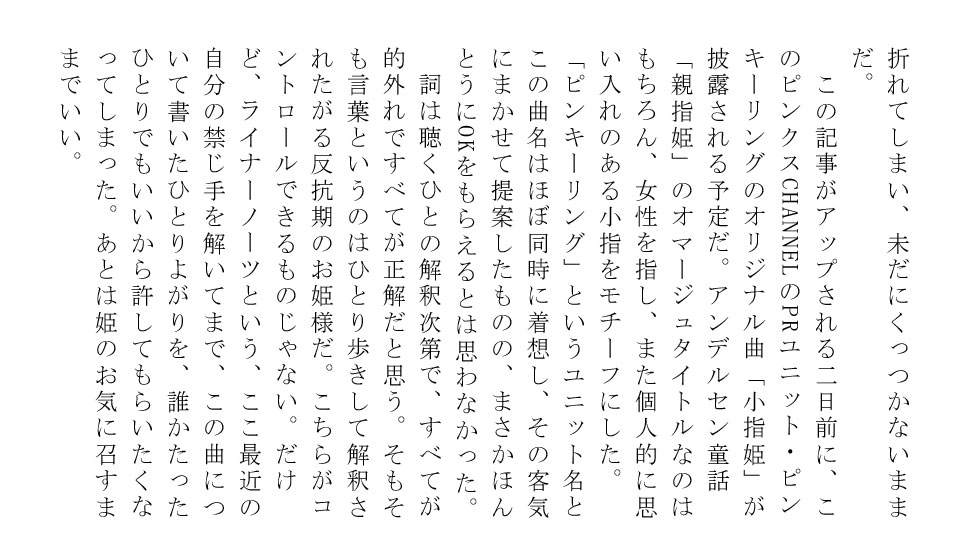 折れてしまい、未だにくっつかないまま
だ。
　この記事がアップされる二日前に、こ
のピンクスCHANNELのPRユニット・ピン
キーリングのオリジナル曲「小指姫」が
披露される予定だ。アンデルセン童話
「親指姫」のオマージュタイトルなのは
もちろん、女性を指し、また個人的に思
い入れのある小指をモチーフにした。
「ピンキーリング」というユニット名と
この曲名はほぼ同時に着想し、その客気
にまかせて提案したものの、まさかほん
とうにOKをもらえるとは思わなかった。
　詞は聴くひとの解釈次第で、すべてが
的外れですべてが正解だと思う。そもそ
も言葉というのはひとり歩きして解釈さ
れたがる反抗期のお姫様だ。こちらがコ
ントロールできるものじゃない。だけ
ど、ライナーノーツという、ここ最近の
自分の禁じ手を解いてまで、この曲につ
いて書いたひとりよがりを、誰かたった
ひとりでもいいから許してもらいたくな
ってしまった。あとは姫のお気に召すま
までいい。